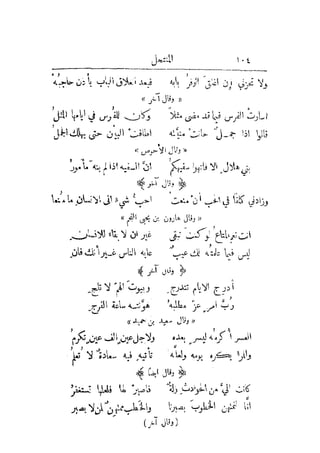 ١٠٤ المنتحل
ولا تجزني إن اغلق الوفر بابه فبعد انغلاق الباب يأذن حاجبه
« وقال آخر »
اسارت الفرس فيما قد مضى مثلاً وكان للفرس في ايامها المثل
قالوا اذا جمل حانت منيته اطاف البئر حتى يهلك الجمل
« وقال الأحوص »
بني هلال الا فانهوا سفيهكم انّ السفيه اذا لم ينه مأمور
وقال آخر
وزادني كلفاً في الحب أن منعت احب شيء الى الانسان ما منعا
« وقال هارون بن يحيى »
انت نعم المتاع لو كنت تبقى غير ان لا بقاء للانسان
ليس فيما علمته لك عيب عابه الناس غير أنك فان
وقال آخر
أدرج الايام تندرج وبيوت الهم لا تلج
رب امر عز مطلبه هونته ساعة الفرج
« وقال سعيد بن حميد »
العسر أكرمه ليسر بعده ولاجل عين الف عين تكرم
والمرء يكره يومه ولعله تأتيه فيه سعادة لا تعلم
وقال ايضاً
كانت اليّ من الحوادث زلة فاصبر لها فلعلها تستغفر
انّا لنمتهن الخطوب بصبرنا والخطب ممتهن لمن لا يصبر
( وقال آخر )